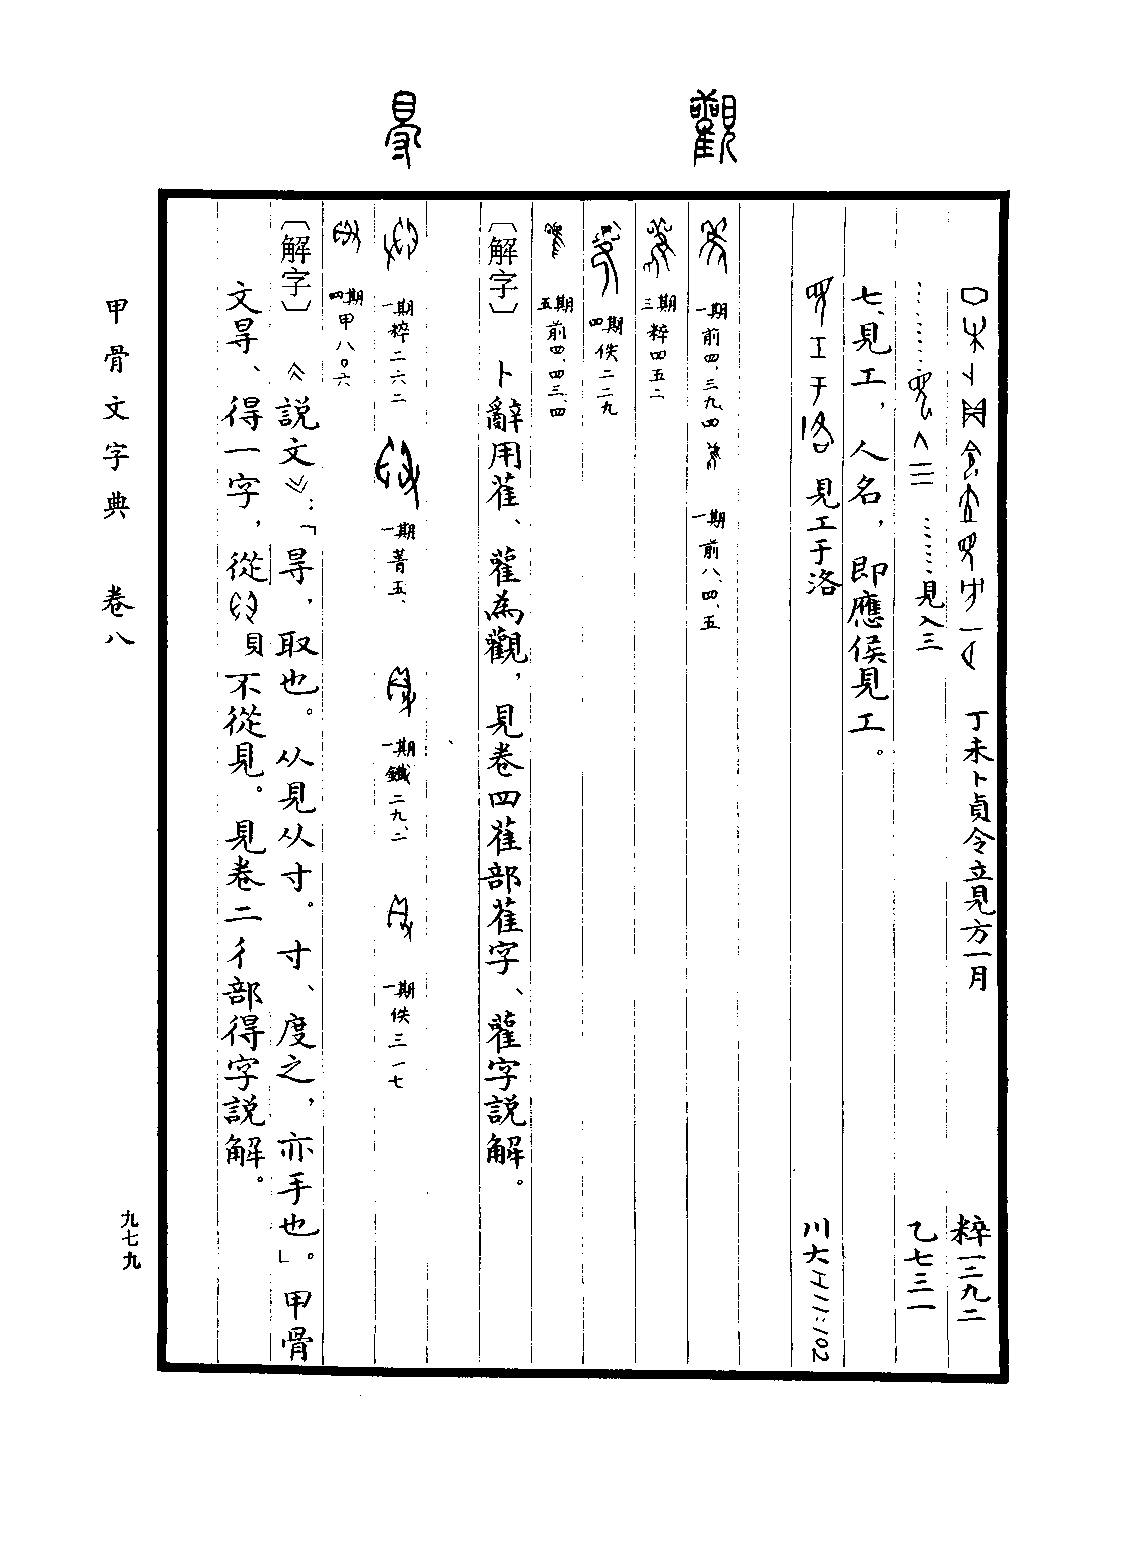 丁未卜貞令立見方一月 粹一二九二
……見入三 乙七三一
七、見工，人名，即應侯見工。
見工于洛 川大工一二：102
觀
一期前四．三九．四 一期前八．四．五
三期粹四五二
四期佚二二九
五期前四．四三．四
〔解字〕 卜辭用萑、雚為觀，見卷四萑部萑字、雚字說解。
㝵
一期粹二六二 一期菁五． 一期鐵二九．二 一期佚三一七
四期甲八〇六
〔解字〕 《說文》：「㝵，取也。从見从寸。寸、度之，亦手也」。甲骨
文㝵、得一字，從貝不從見。見卷二彳部得字說解。
甲骨文字典 卷八
九七九